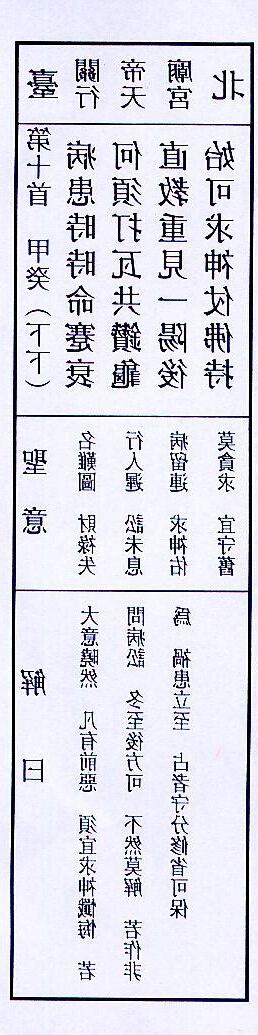 臺北
關帝廟
行天宮
第十首 甲癸（下下）
病患時時命蹇衰
何須打瓦共鑽龜
直教重見一陽後
始可求神仗佛持
聖意
名難圖 財祿失
行人遲 訟未息
病留連 求神佑
莫貪求 宜守舊
解曰
大意曉然 凡有前惡 須宜求神懺悔 若
問病訟 冬至後方可 不然莫解 若作非
爲 禍患立至 占者守分修省可保